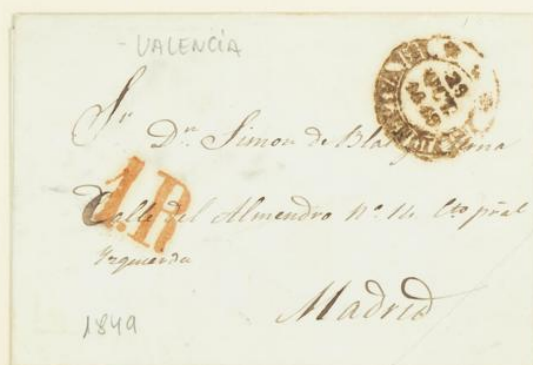 VALENCIA
29
1849
Sr
Dn Simon de
1.R
Calle del Almendro nº 14 Cto pral
Izquierda
Madrid
1849